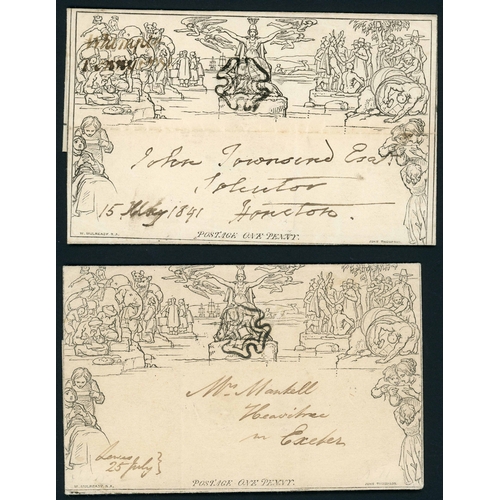 Whimple
Penny Post
John Townsend Esq
Solicitor
15 May 1841 Honiton.
POSTAGE ONE PENNY.
W. MULREADY. R.A.
JOHN THOMPSON
Mrs Mantell
Heavitree
nr Exeter
Lewes
25 July
POSTAGE ONE PENNY.
W. MULREADY. R.A.
JOHN THOMPSON